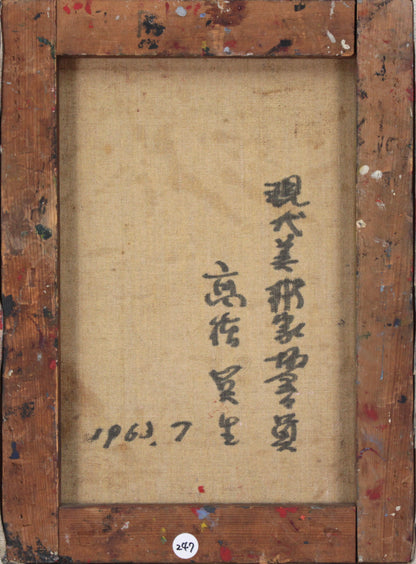 現代美術家協會員
高橋 生
1963. 7
247